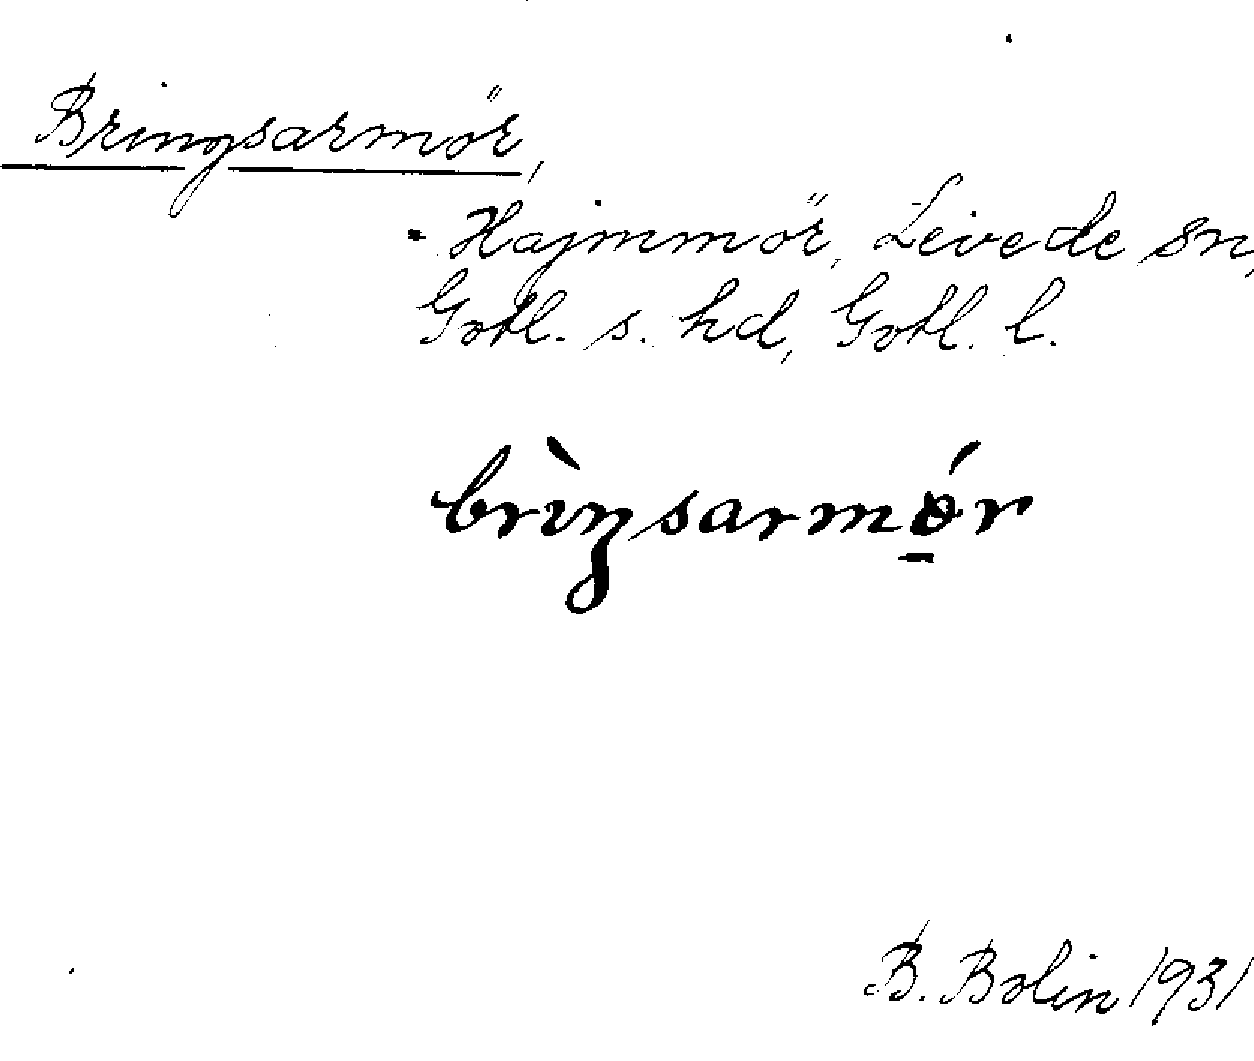 Bringsarmör,
- Hajmmör, Levede sn,
Gotl. s. hd, Gotl. l.
brìŋsarmǿ̠r
B. Bolin 1931